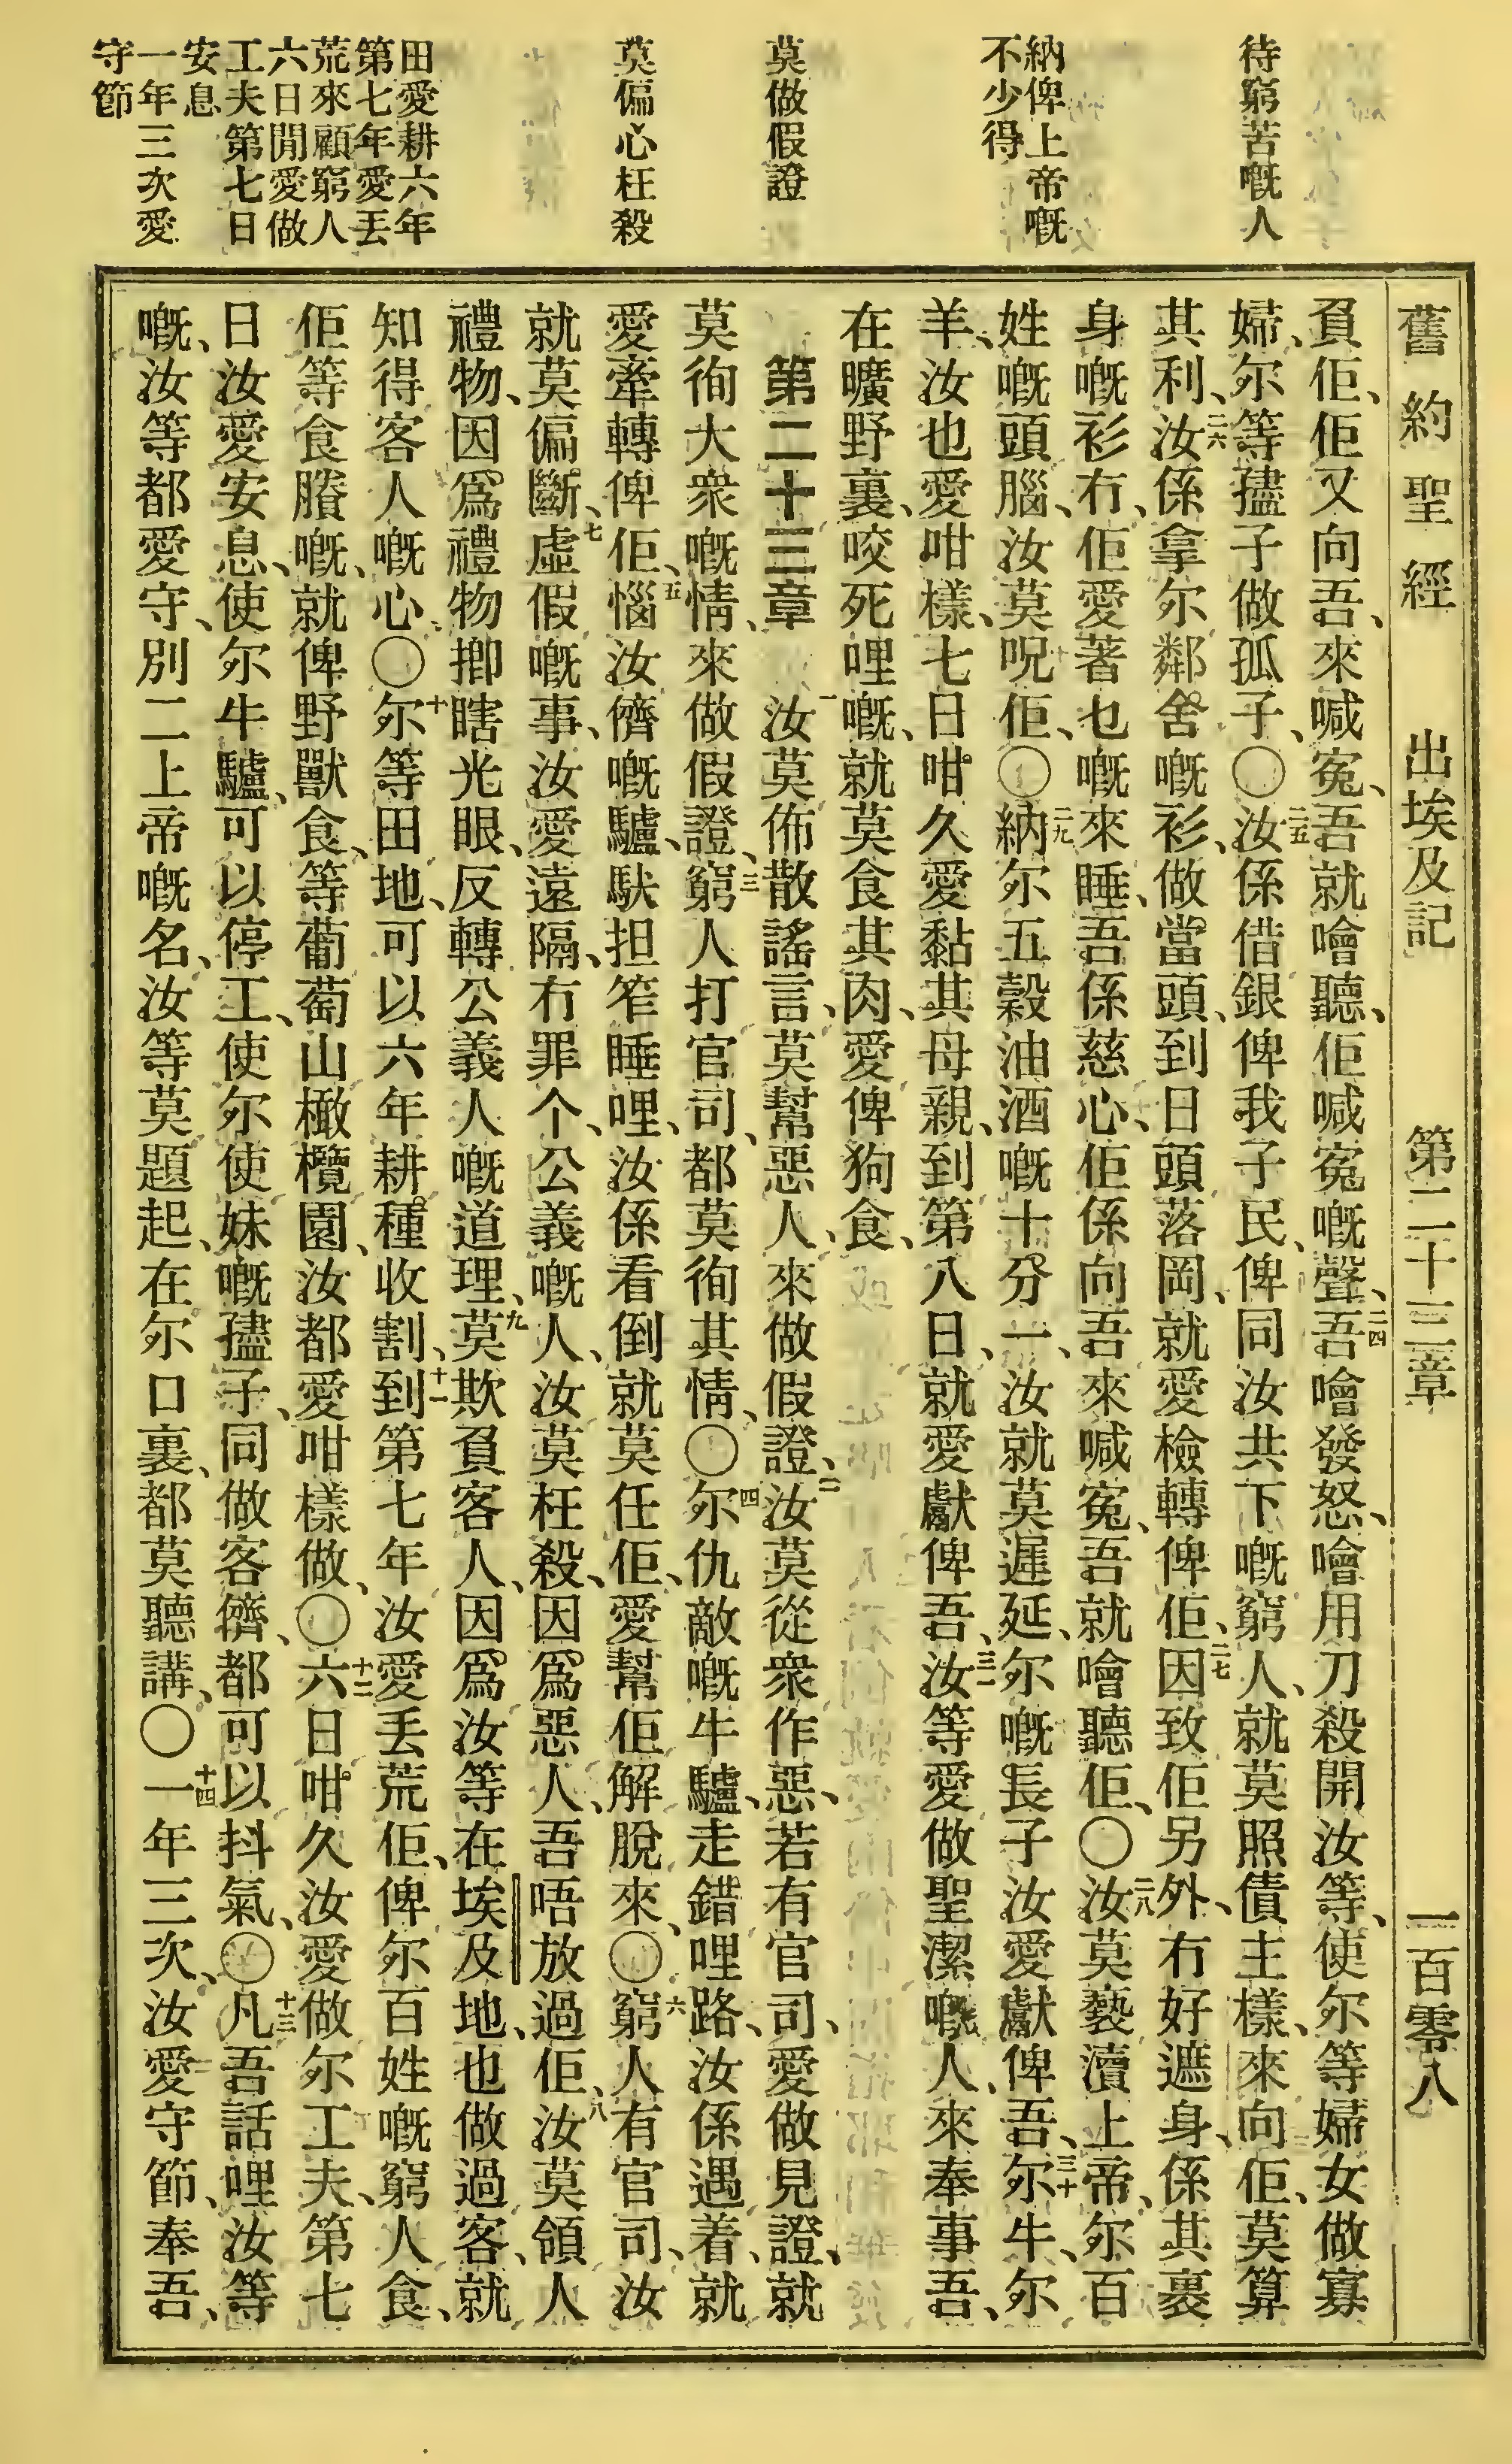 待窮苦嘅人
納俾上帝嘅
不少得
莫做假證
莫偏心枉殺
田愛耕六年
第七年愛丟
荒來顧窮人
六日閒愛做
工夫第七日
安息
一年三次愛
守節
舊約聖經 出埃及記 第二十三章 一百零八
負佢、佢又向吾、來喊寃、吾就噲聽、佢喊寃嘅聲、二四吾噲發怒、噲用刀殺開汝等、使尔等婦女做寡
婦、尔等𡥧子做孤子、〇二五汝係借銀俾我子民、俾同汝共下嘅窮人、就莫照債主樣、來向佢、莫算
其利、二六汝係拿尔鄰舍嘅衫、做當頭、到日頭落岡、就愛檢轉俾佢、二七因致佢另外、冇好遮身、係其裏
身嘅衫冇、佢愛著乜嘅來睡、吾係慈心、佢係向吾來喊寃、吾就噲聽佢、〇二八汝莫褻瀆上帝、尔百
姓嘅頭腦、汝莫呪佢、〇二九納尔五穀油酒嘅十分一、汝就莫遲延、尔嘅長子汝愛獻俾吾、三十尔牛、尔
羊、汝也愛咁樣、七日咁久愛黏其母親、到第八日、就愛獻俾吾、三一汝等愛做聖潔嘅人、來奉事吾、
在曠野裏、咬死哩嘅、就莫食其肉、愛俾狗食、
第二十三章 一汝莫佈散謠言、莫幫惡人、來做假證、二汝莫從衆作惡、若有官司、愛做見證、就
莫徇大衆嘅情、來做假證、三窮人打官司、都莫徇其情、〇四尔仇敵嘅牛驢、走錯哩路、汝係遇着、就
愛牽轉俾佢、五惱汝儕嘅驢、馱担笮睡哩、汝係看倒就莫任佢、愛幫佢解脫來、〇六窮人有官司、汝
就莫偏斷、七虛假嘅事、汝愛遠隔、冇罪个、公義嘅人、汝莫枉殺、因爲惡人、吾唔放過佢、八汝莫領人
禮物、因爲禮物揤瞎光眼、反轉公義人嘅道理、九莫欺負客人、因爲汝等在埃及地、也做過客、就
知得客人嘅心、〇十尔等田地、可以六年耕種收割、十一到第七年汝愛丟荒佢、俾尔百姓嘅窮人食、
佢等食賸嘅、就俾野獸食、等葡萄山橄欖園、汝都愛咁樣做、〇十二六日咁久汝愛做尔工夫、第七
日汝愛安息、使尔牛驢、可以停工、使尔使妹嘅𡥧子、同做客儕、都可以抖氣、〇十三凡吾話哩汝等
嘅、汝等都愛守、別二上帝嘅名、汝等莫題起、在尔口裏、都莫聽講、〇十四一年三次、汝愛守節、奉吾、